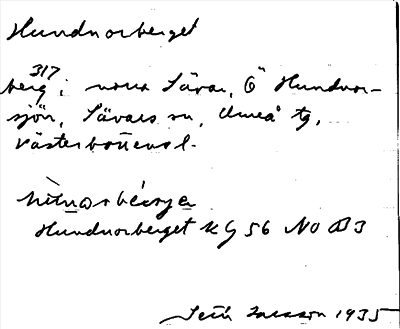 Hundnorberget
317
berg i norra Sävar, Ö Hundnor-
sjön, Sävars sn, Umeå tg,
Västerbottens l.
Hundnorberget KG 56 NO B3
Seth Larsson 1935